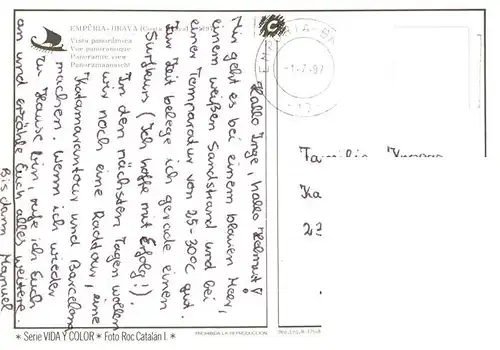 EMPÚRIA-BRAVA (Costa Brava)
Vista panorámica
Vue panoramique
Panoramic view
Panoramaansicht
Hallo Inge, hallo Helmut!
Mir geht es bei einem blauen Meer,
einem weißen Sandstrand und bei
einer Temparatur von 25-30°C gut.
Zur Zeit belege ich gerade einen
Surfkurs (Ich hoffe mit Erfolg!).
In den nächsten Tagen wollen
wir noch eine Radtour, eine
Katamarantour und Barcelona
machen. Wenn ich wieder
zu Hause bin, rufe ich Euch
an und erzähle Euch alles weitere.
Bis dann Manuel
-1-7-97
Familie
Ka
23
* Serie VIDA Y COLOR * Foto Roc Catalán I. *
PROHIBIDA LA REPRODUCCION